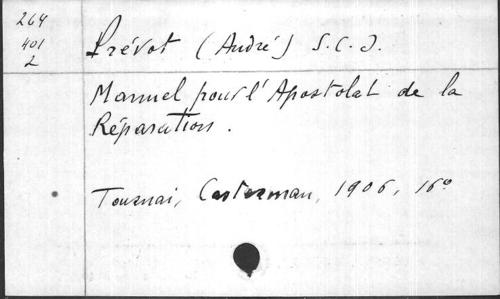 264
401
2
Prévot (André) S.C.J.
Manuel pour l'Apostolat de la
Réparation.
Tournai, Casterman, 1906, 16º